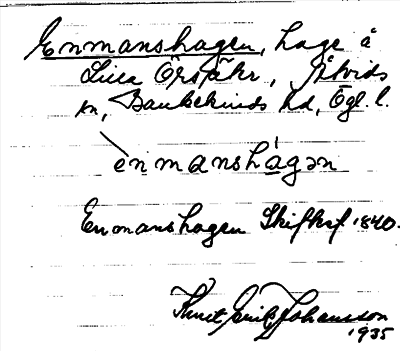 Enmanshagen, hage å
Lilla Örsåkr., Åtvids
sn, Bankekinds hd, Ögl. l.
ènmanshágən
Enmanshagen Skifteskf 1840.
Knut Erik Johansson
1935